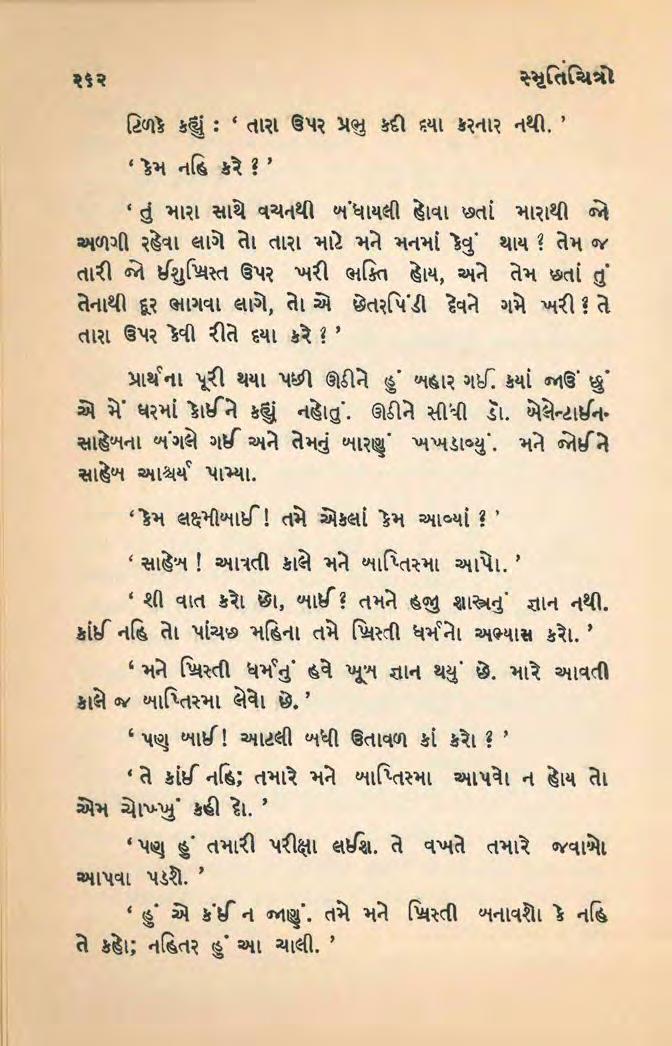 ૨૬૨ સ્મૃતિચિત્રો
ટિળકે કહ્યું : ‘ તારા ઉપર પ્રભુ કદી દયા કરનાર નથી. ’
‘ કેમ નહિ કરે ? ’
‘ તું મારા સાથે વચનથી બંધાયલી હોવા છતાં મારાથી જો
અળગી રહેવા લાગે તો તારા માટે મને મનમાં કેવું થાય ? તેમ જ
તારી જો ઈશુખ્રિસ્ત ઉપર ખરી ભક્તિ હોય, અને તેમ છતાં તું
તેનાથી દૂર ભાગવા લાગે, તો એ છેતરપિંડી દેવને ગમે ખરી ? તે
તારા ઉપર કેવી રીતે દયા કરે ? ’
પ્રાર્થના પૂરી થયા પછી ઊઠીને હું બહાર ગઈ. ક્યાં જાઉં છું
એ મેં ઘરમાં કોઈને કહ્યું નહોતું. ઊઠીને સીધી ડૉ. બેલેન્ટાઈન-
સાહેબના બંગલે ગઈ અને તેમનું બારણું ખખડાવ્યું. મને જોઈને
સાહેબ આશ્ચર્ય પામ્યા.
‘ કેમ લક્ષ્મીબાઈ ! તમે એકલાં કેમ આવ્યાં ? ’
‘ સાહેબ ! આવતી કાલે મને બાપ્તિસ્મા આપો. ’
‘ શી વાત કરો છો, બાઈ ? તમને હજી શાસ્ત્રનું જ્ઞાન નથી.
કાંઈ નહિ તો પાંચછ મહિના તમે ખ્રિસ્તી ધર્મનો અભ્યાસ કરો. ’
‘ મને ખ્રિસ્તી ધર્મનું હવે ખૂબ જ્ઞાન થયું છે. મારે આવતી
કાલે જ બાપ્તિસ્મા લેવો છે. ’
‘ પણ બાઈ ! આટલી બધી ઉતાવળ કાં કરો ? ’
‘ તે કાંઈ નહિ; તમારે મને બાપ્તિસ્મા આપવો ન હોય તો
એમ ચોખ્ખું કહી દો. ’
‘ પણ હું તમારી પરીક્ષા લઈશ. તે વખતે તમારે જવાબો
આપવા પડશે. ’
‘ હું એ કંઈ ન જાણું. તમે મને ખ્રિસ્તી બનાવશો કે નહિ
તે કહો; નહિતર હું આ ચાલી. ’